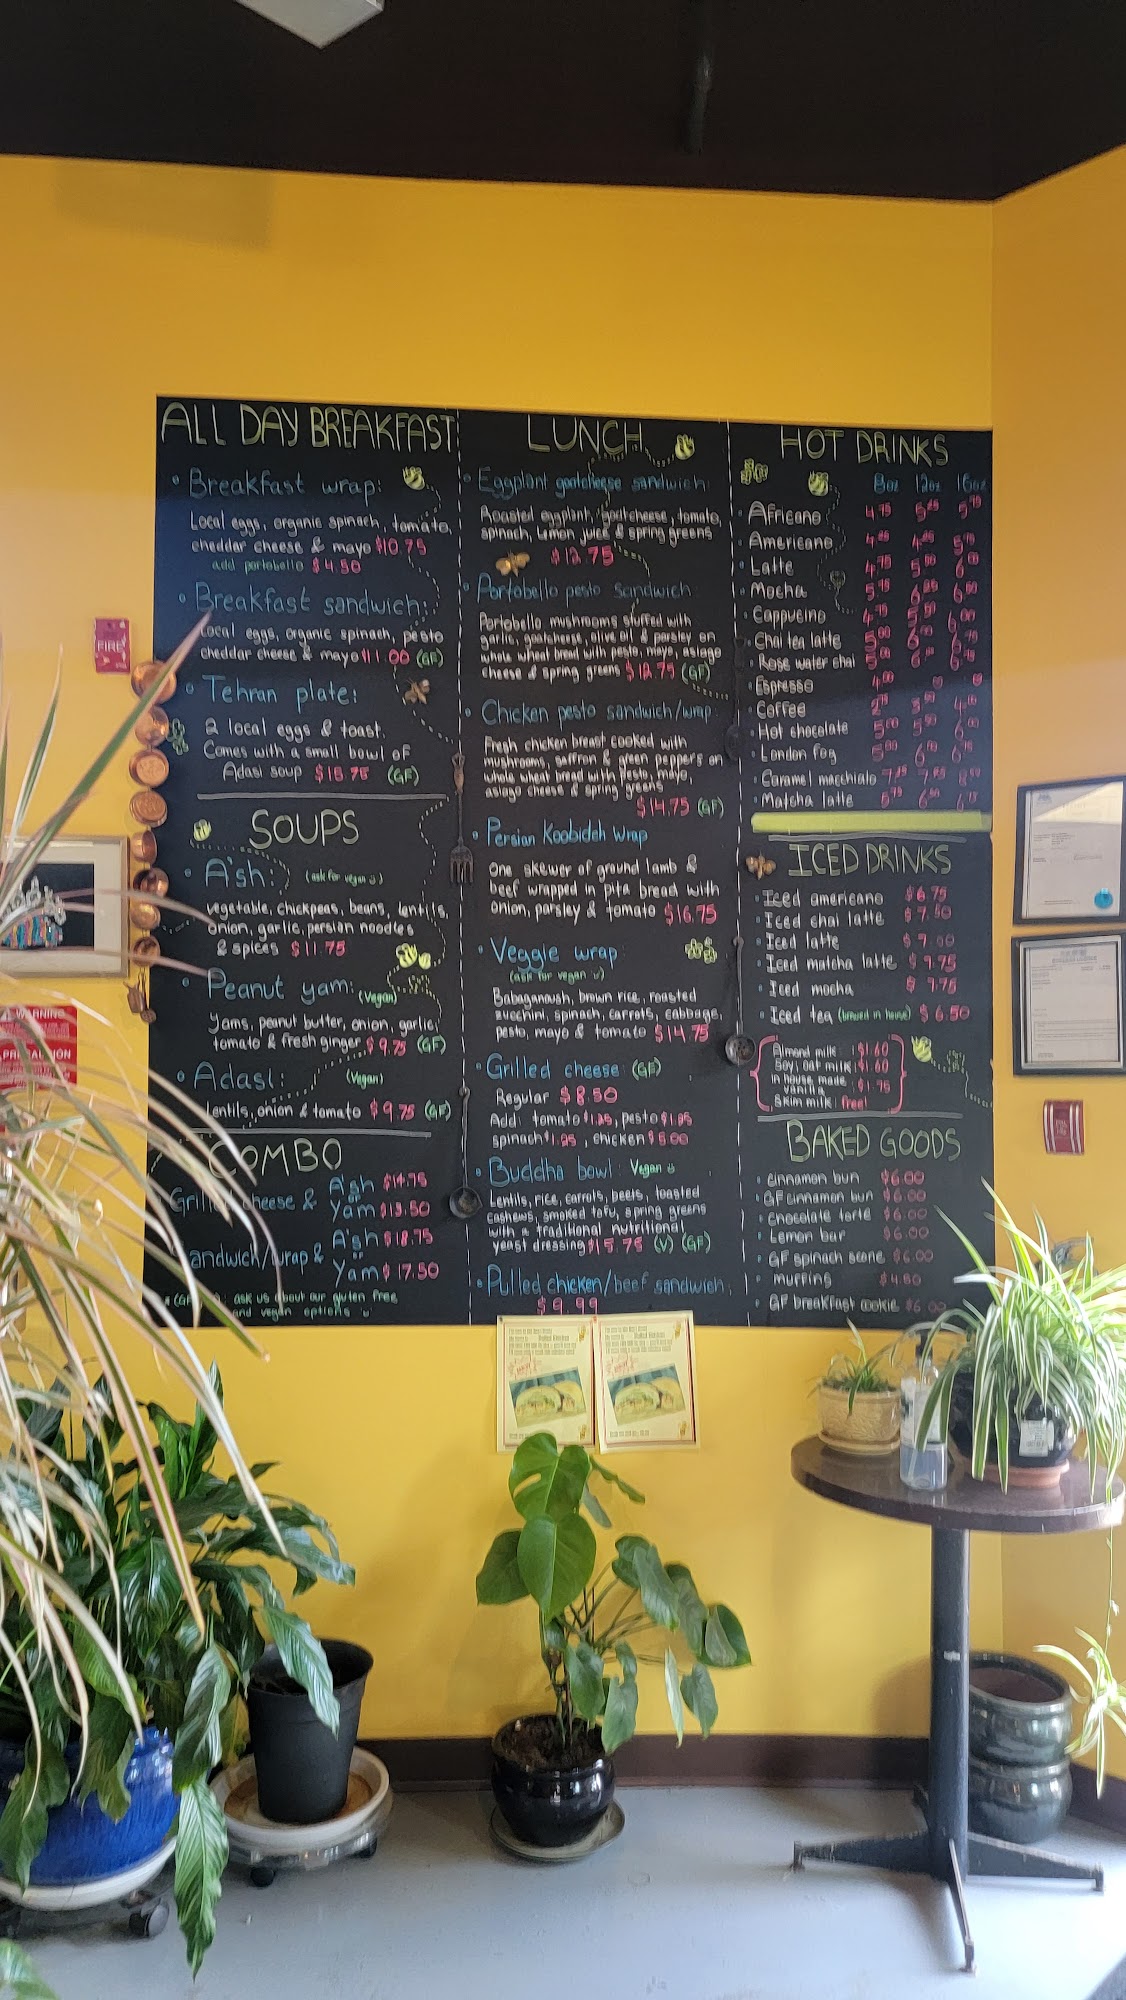 ALL DAY BREAKFAST
• Breakfast wrap:
Local eggs, organic spinach, tomato,
cheddar cheese & mayo $10.75
add portobello $4.50
• Breakfast sandwich:
Local eggs, organic spinach, pesto
cheddar cheese & mayo $11.00 (GF)
• Tehran plate:
2 local eggs & toast.
Comes with a small bowl of
Adasi soup $15.75 (GF)
SOUPS
• A'sh: (ask for vegan :)
vegetable, chickpeas, beans, lentils,
onion, garlic, persian noodles
& spices $11.75
• Peanut yam: (Vegan)
Yams, peanut butter, onion, garlic,
tomato & fresh ginger $9.75 (GF)
• Adasi: (Vegan)
Lentils, onion & tomato $9.75 (GF)
COMBO
Grilled cheese & A'sh $14.75
or
Yam $13.50
andwich/wrap & A'sh $18.75
or
Yam $17.50
ask us about our gluten free
and vegan options
LUNCH
• Eggplant goatcheese sandwich:
Roasted eggplant, goatcheese, tomato,
spinach, lemon juice & spring greens
$12.75
• Portobello pesto sandwich
Portobello mushrooms stuffed with
garlic, goatcheese, olive oil & parsley on
whole wheat bread with pesto, mayo, asiago
cheese & spring greens $12.75 (GF)
• Chicken pesto sandwich/wrap:
Fresh chicken breast cooked with
mushrooms, saffron & green peppers on
whole wheat bread with pesto, mayo,
asiago cheese & spring greens
$14.75 (GF)
• Persian Koobideh wrap
One skewer of ground lamb &
beef wrapped in pita bread with
onion, parsley & tomato $16.75
• Veggie wrap:
(ask for vegan :)
Babaganoush, brown rice, roasted
zucchini, spinach, carrots, cabbage,
pesto, mayo & tomato $14.75
• Grilled cheese: (GF)
Regular $8.50
Add: tomato $1.25, pesto $1.25
spinach $1.25, chicken $5.00
• Buddha bowl: Vegan :)
Lentils, rice, carrots, beets, toasted
cashews, smoked tofu, spring greens
with a traditional nutritional
yeast dressing $15.75 (V) (GF)
• Pulled chicken/beef sandwich:
$9.99
HOT DRINKS
8oz 12oz 16oz
• Africano 4.75
• Americano
• Latte
• Mocha
• Cappucino
• Chai tea latte
• Rose water chai
• Espresso
• Coffee
• Hot chocolate
• London fog
• Caramel macchiato
• Matcha latte
ICED DRINKS
• Iced americano $6.75
• Iced chai latte $7.50
• Iced latte $7.00
• Iced matcha latte $9.75
• Iced mocha $7.75
• Iced tea (brewed in house) $6.50
Almond milk: $1.60
Soy, oat milk: $1.60
in house made
vanilla : $1.75
Skim milk: free!
BAKED GOODS
• cinnamon bun $6.00
• GF cinnamon bun $6.00
• Chocolate torte $6.00
• Lemon bar $6.00
• GF spinach scone $6.00
• muffins $4.50
• GF breakfast cookie $6.00
FIRE
WARNING
PRECAUCIÓN